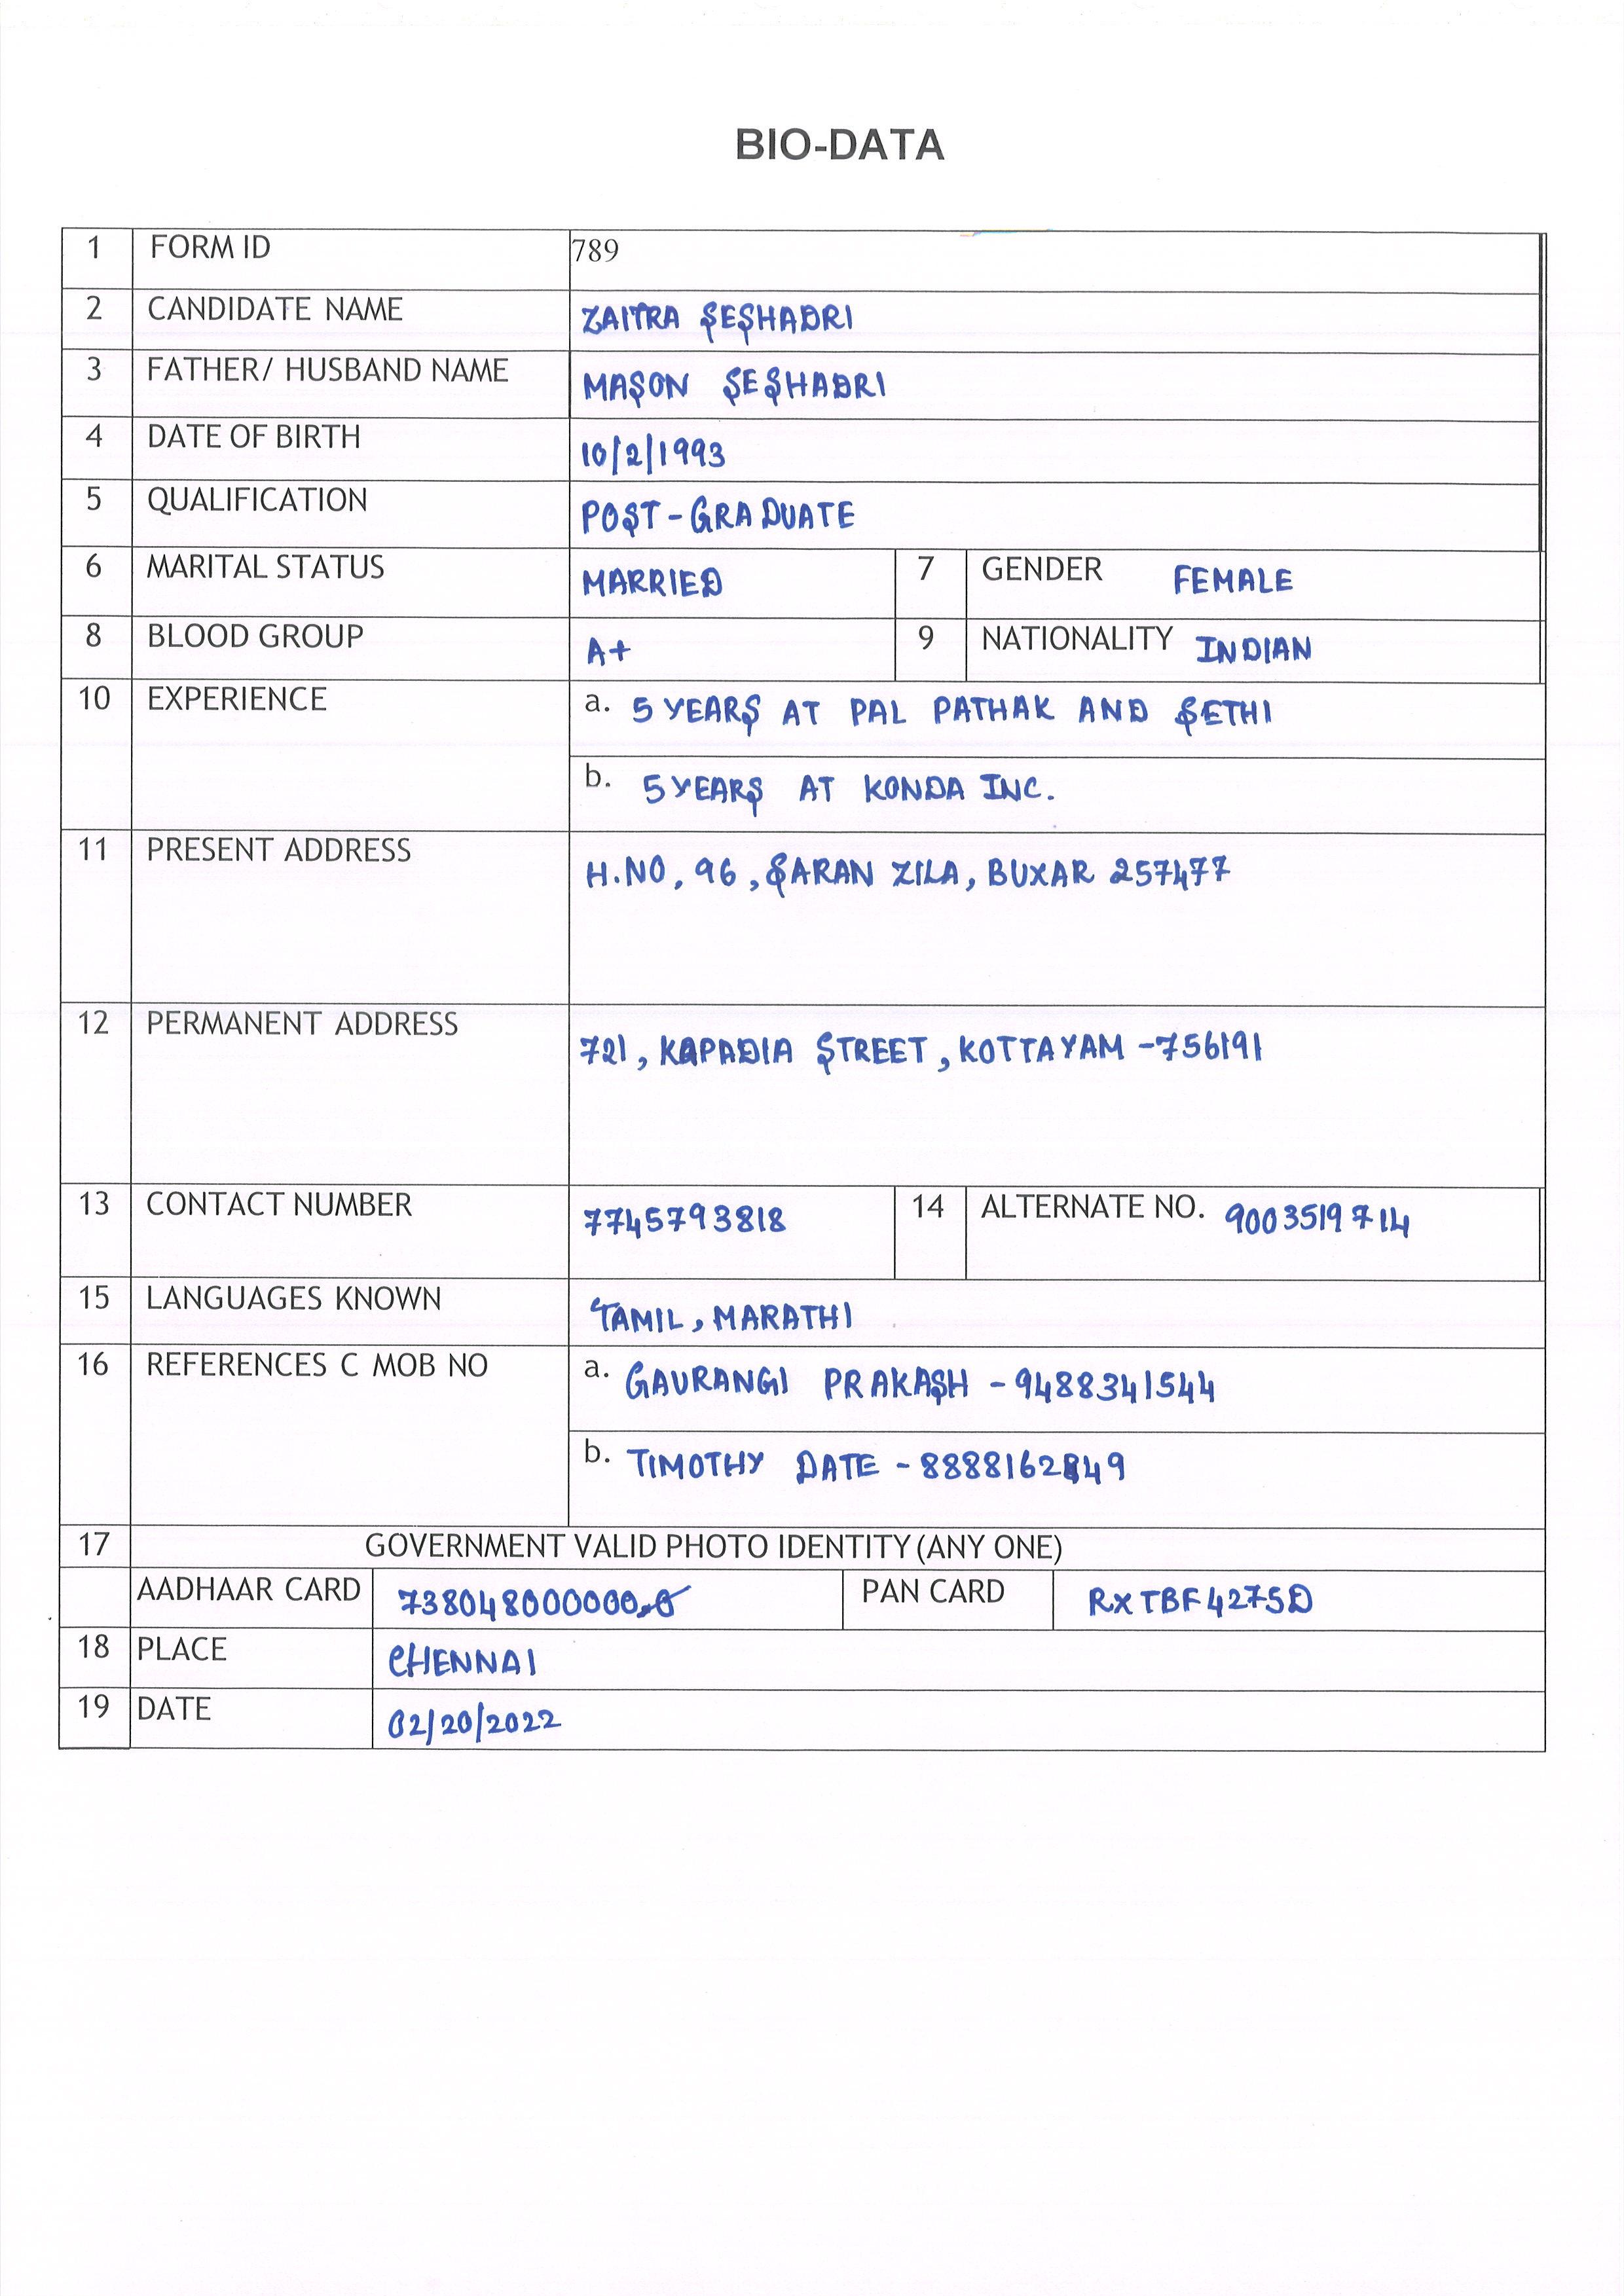 BIO-DATA
1 FORM ID 789
2 CANDIDATE NAME ZAITRA SESHADRI
3 FATHER/ HUSBAND NAME MASON SESHADRI
4 DATE OF BIRTH 10/2/1993
5 QUALIFICATION POST-GRADUATE
6 MARITAL STATUS MARRIED 7 GENDER FEMALE
8 BLOOD GROUP A+ 9 NATIONALITY INDIAN
10 EXPERIENCE a. 5 YEARS AT PAL PATHAK AND SETHI
b. 5 YEARS AT KONDA INC.
11 PRESENT ADDRESS H.NO, 96, SARAN ZILA, BUXAR 257477
12 PERMANENT ADDRESS 721, KAPADIA STREET, KOTTAYAM -756191
13 CONTACT NUMBER 7745793818 14 ALTERNATE NO. 9003519714
15 LANGUAGES KNOWN TAMIL, MARATHI
16 REFERENCES C MOB NO a. GAURANGI PRAKASH - 9488341544
b. TIMOTHY DATE - 8888162849
17 GOVERNMENT VALID PHOTO IDENTITY (ANY ONE)
AADHAAR CARD 738048000000 PAN CARD RXTBF4275D
18 PLACE CHENNAI
19 DATE 02/20/2022